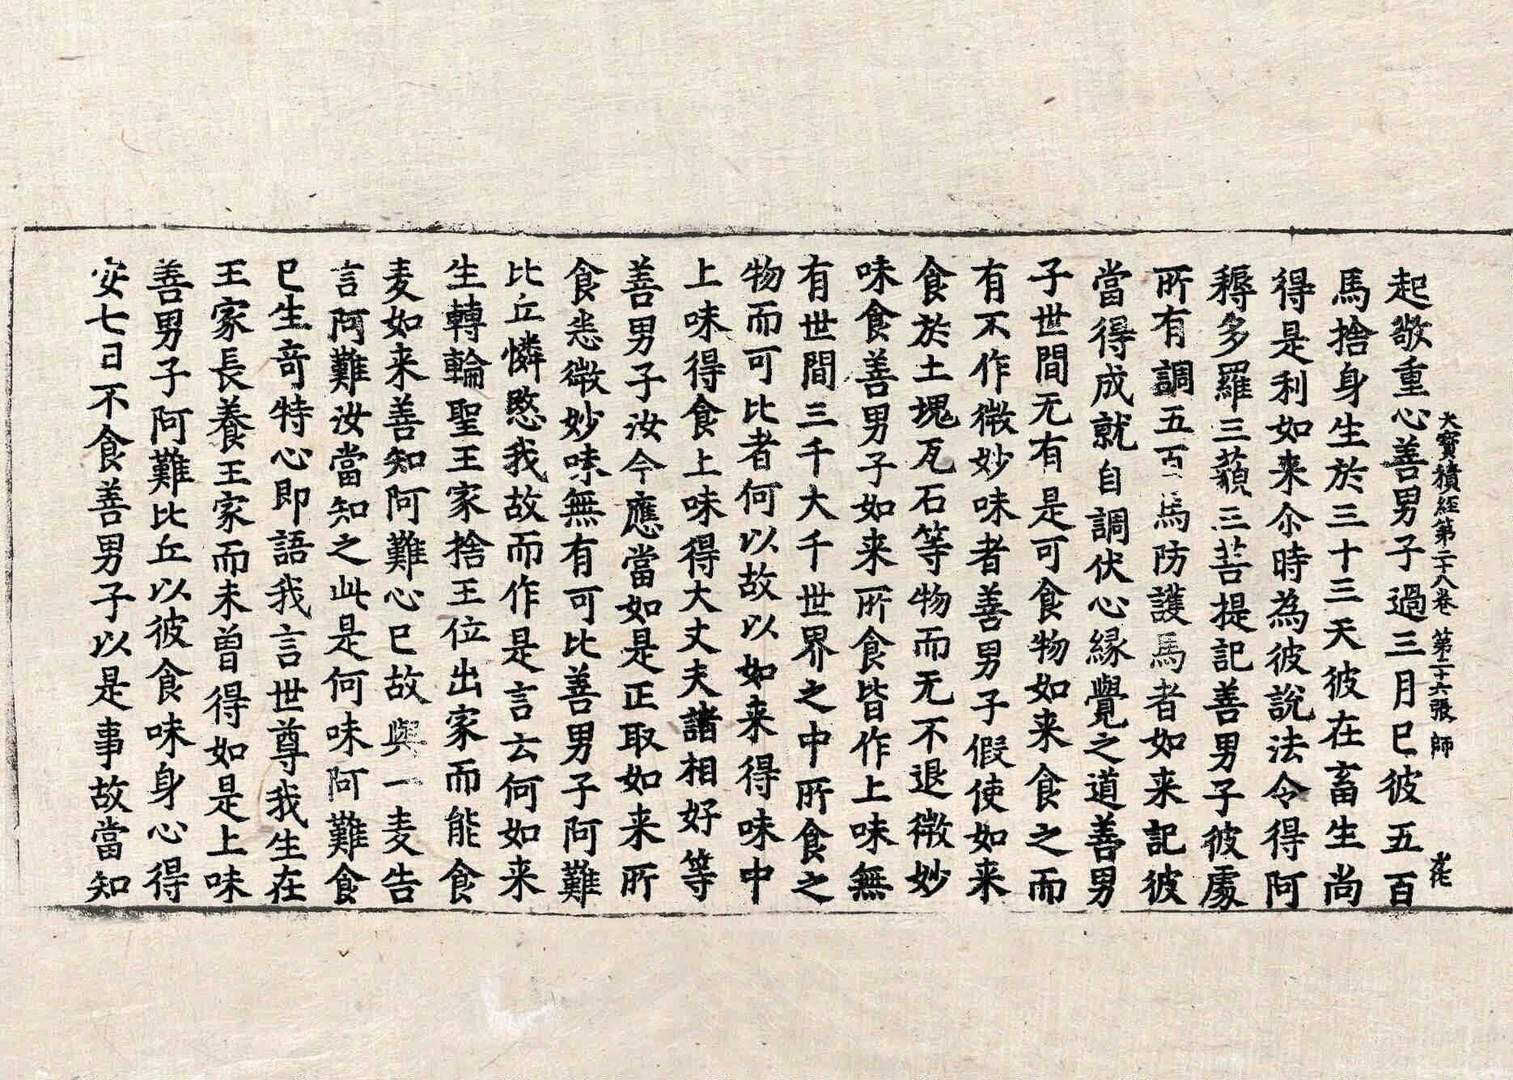 大寶積經第二十八卷 第二十六張 師
起敬重心善男子過三月已彼五百
馬捨身生於三十三天彼在畜生尚
得是利如来尒時為彼說法令得阿
耨多羅三藐三菩提記善男子彼處
所有調五百馬防護馬者如来記彼
當得成就自調伏心緣覺之道善男
子世間无有是可食物如来食之而
有不作微妙味者善男子假使如来
食於土塊瓦石等物而无不退微妙
味食善男子如来所食皆作上味無
有世間三千大千世界之中所食之
物而可比者何以故以如来得味中
上味得食上味得大丈夫諸相好等
善男子汝今應當如是正取如来所
食恙微妙味無有可比善男子阿難
比丘憐愍我故而作是言云何如来
生轉輪聖王家捨王位出家而能食
麦如来善知阿難心已故與一麦告
言阿難汝當知之此是何味阿難食
已生竒特心即語我言世尊我生在
王家長養王家而未曾得如是上味
善男子阿難比丘以彼食味身心得
安七日不食善男子以是事故當知